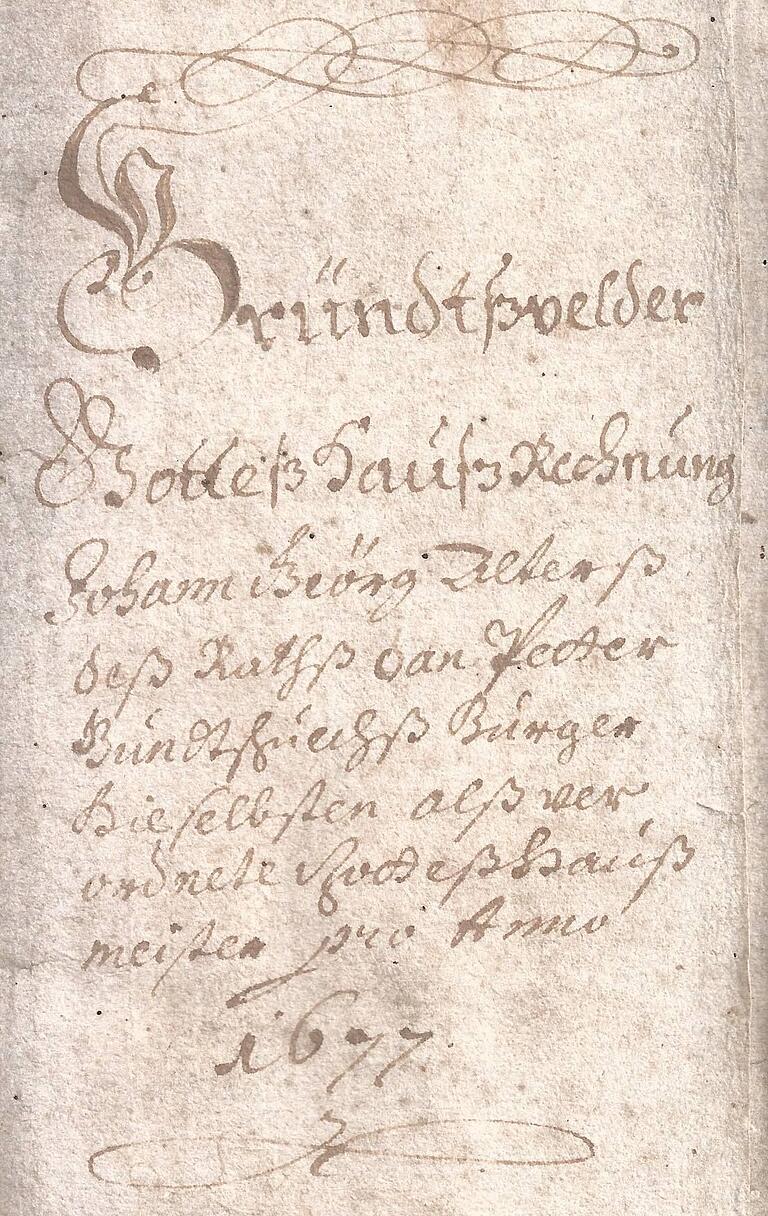 Gründtßvelder
Gotteß Hauß Rechnung
Johann Geörg Alterß
deß Rathß dan Petter
Bundtschuechß Burger
Hieselbsten alß ver
ordnete Gotteß Hauß
meister pro Anno
1677